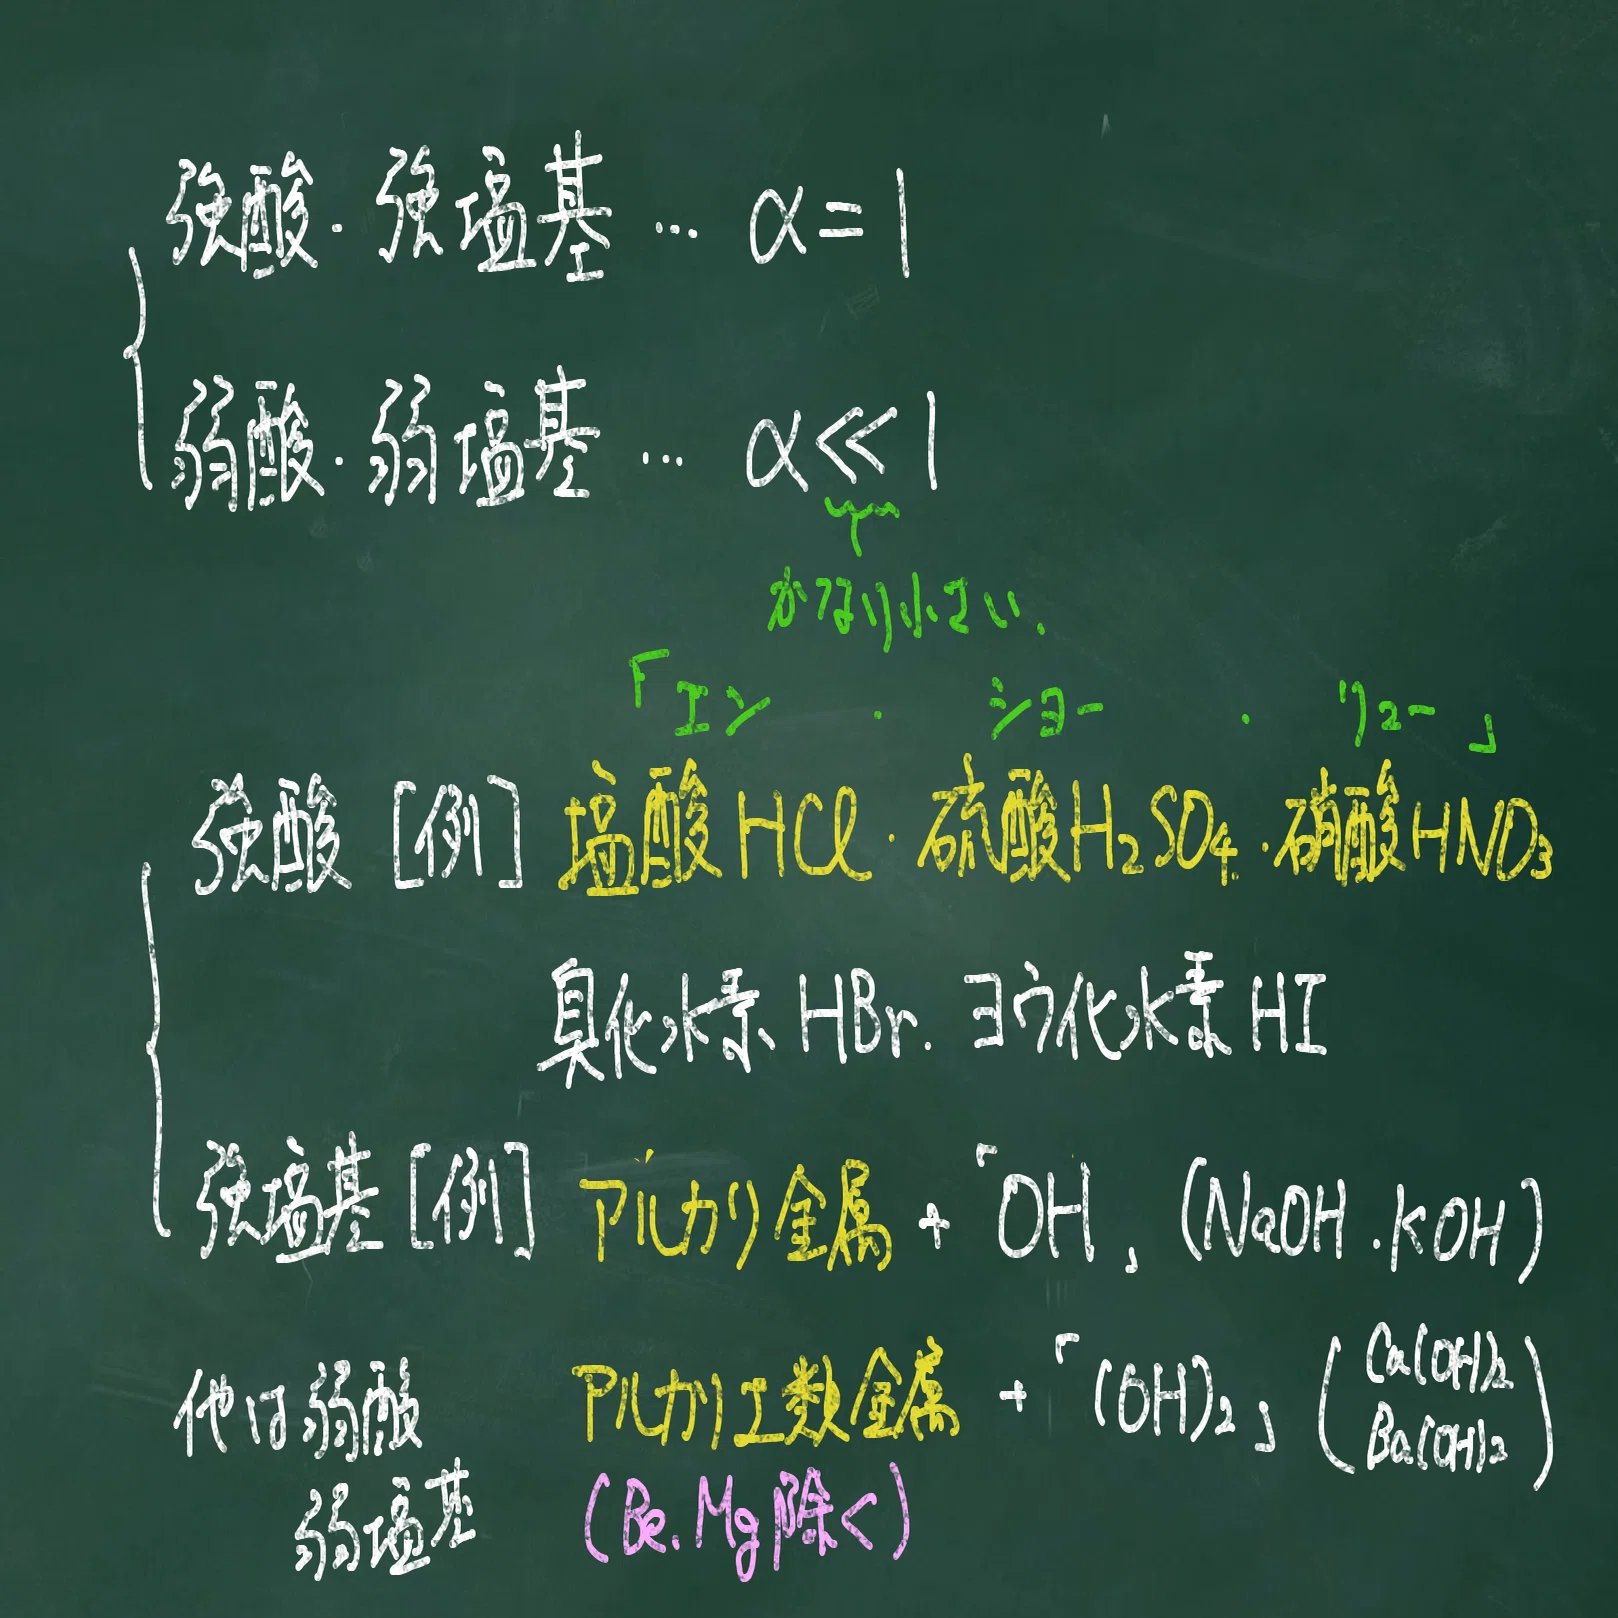 強酸・強塩基 … α=1
弱酸・弱塩基 … α≪1
かなり小さい.
「エン・ショー・リュー」
強酸 [例] 塩酸HCl・硫酸H₂SO₄・硝酸HNO₃
臭化水素 HBr. ヨウ化水素 HI
強塩基 [例] アルカリ金属 + 「OH」 (NaOH.KOH)
他は弱酸 アルカリ土類金属 + 「(OH)₂」 (Ca(OH)₂ Ba(OH)₂)
弱塩基 (Be.Mg除く)